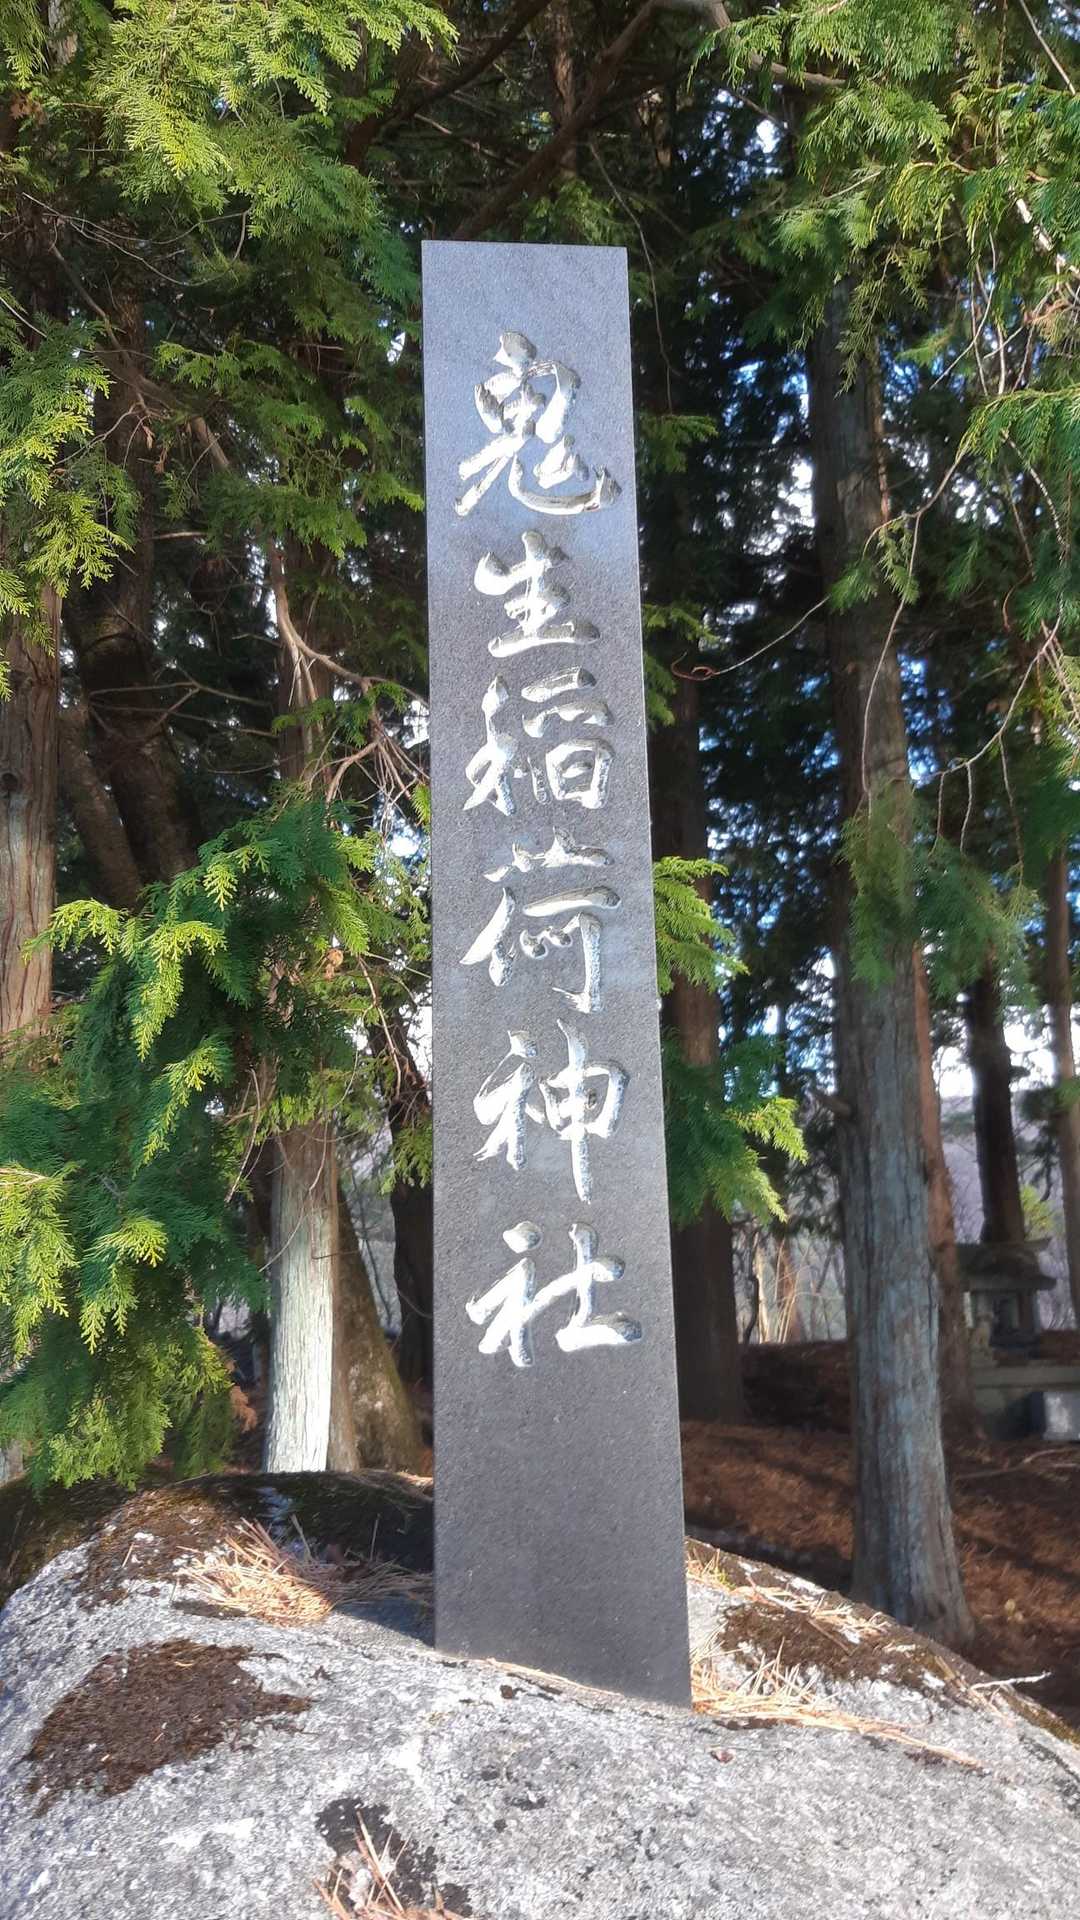 鬼生稲荷神社